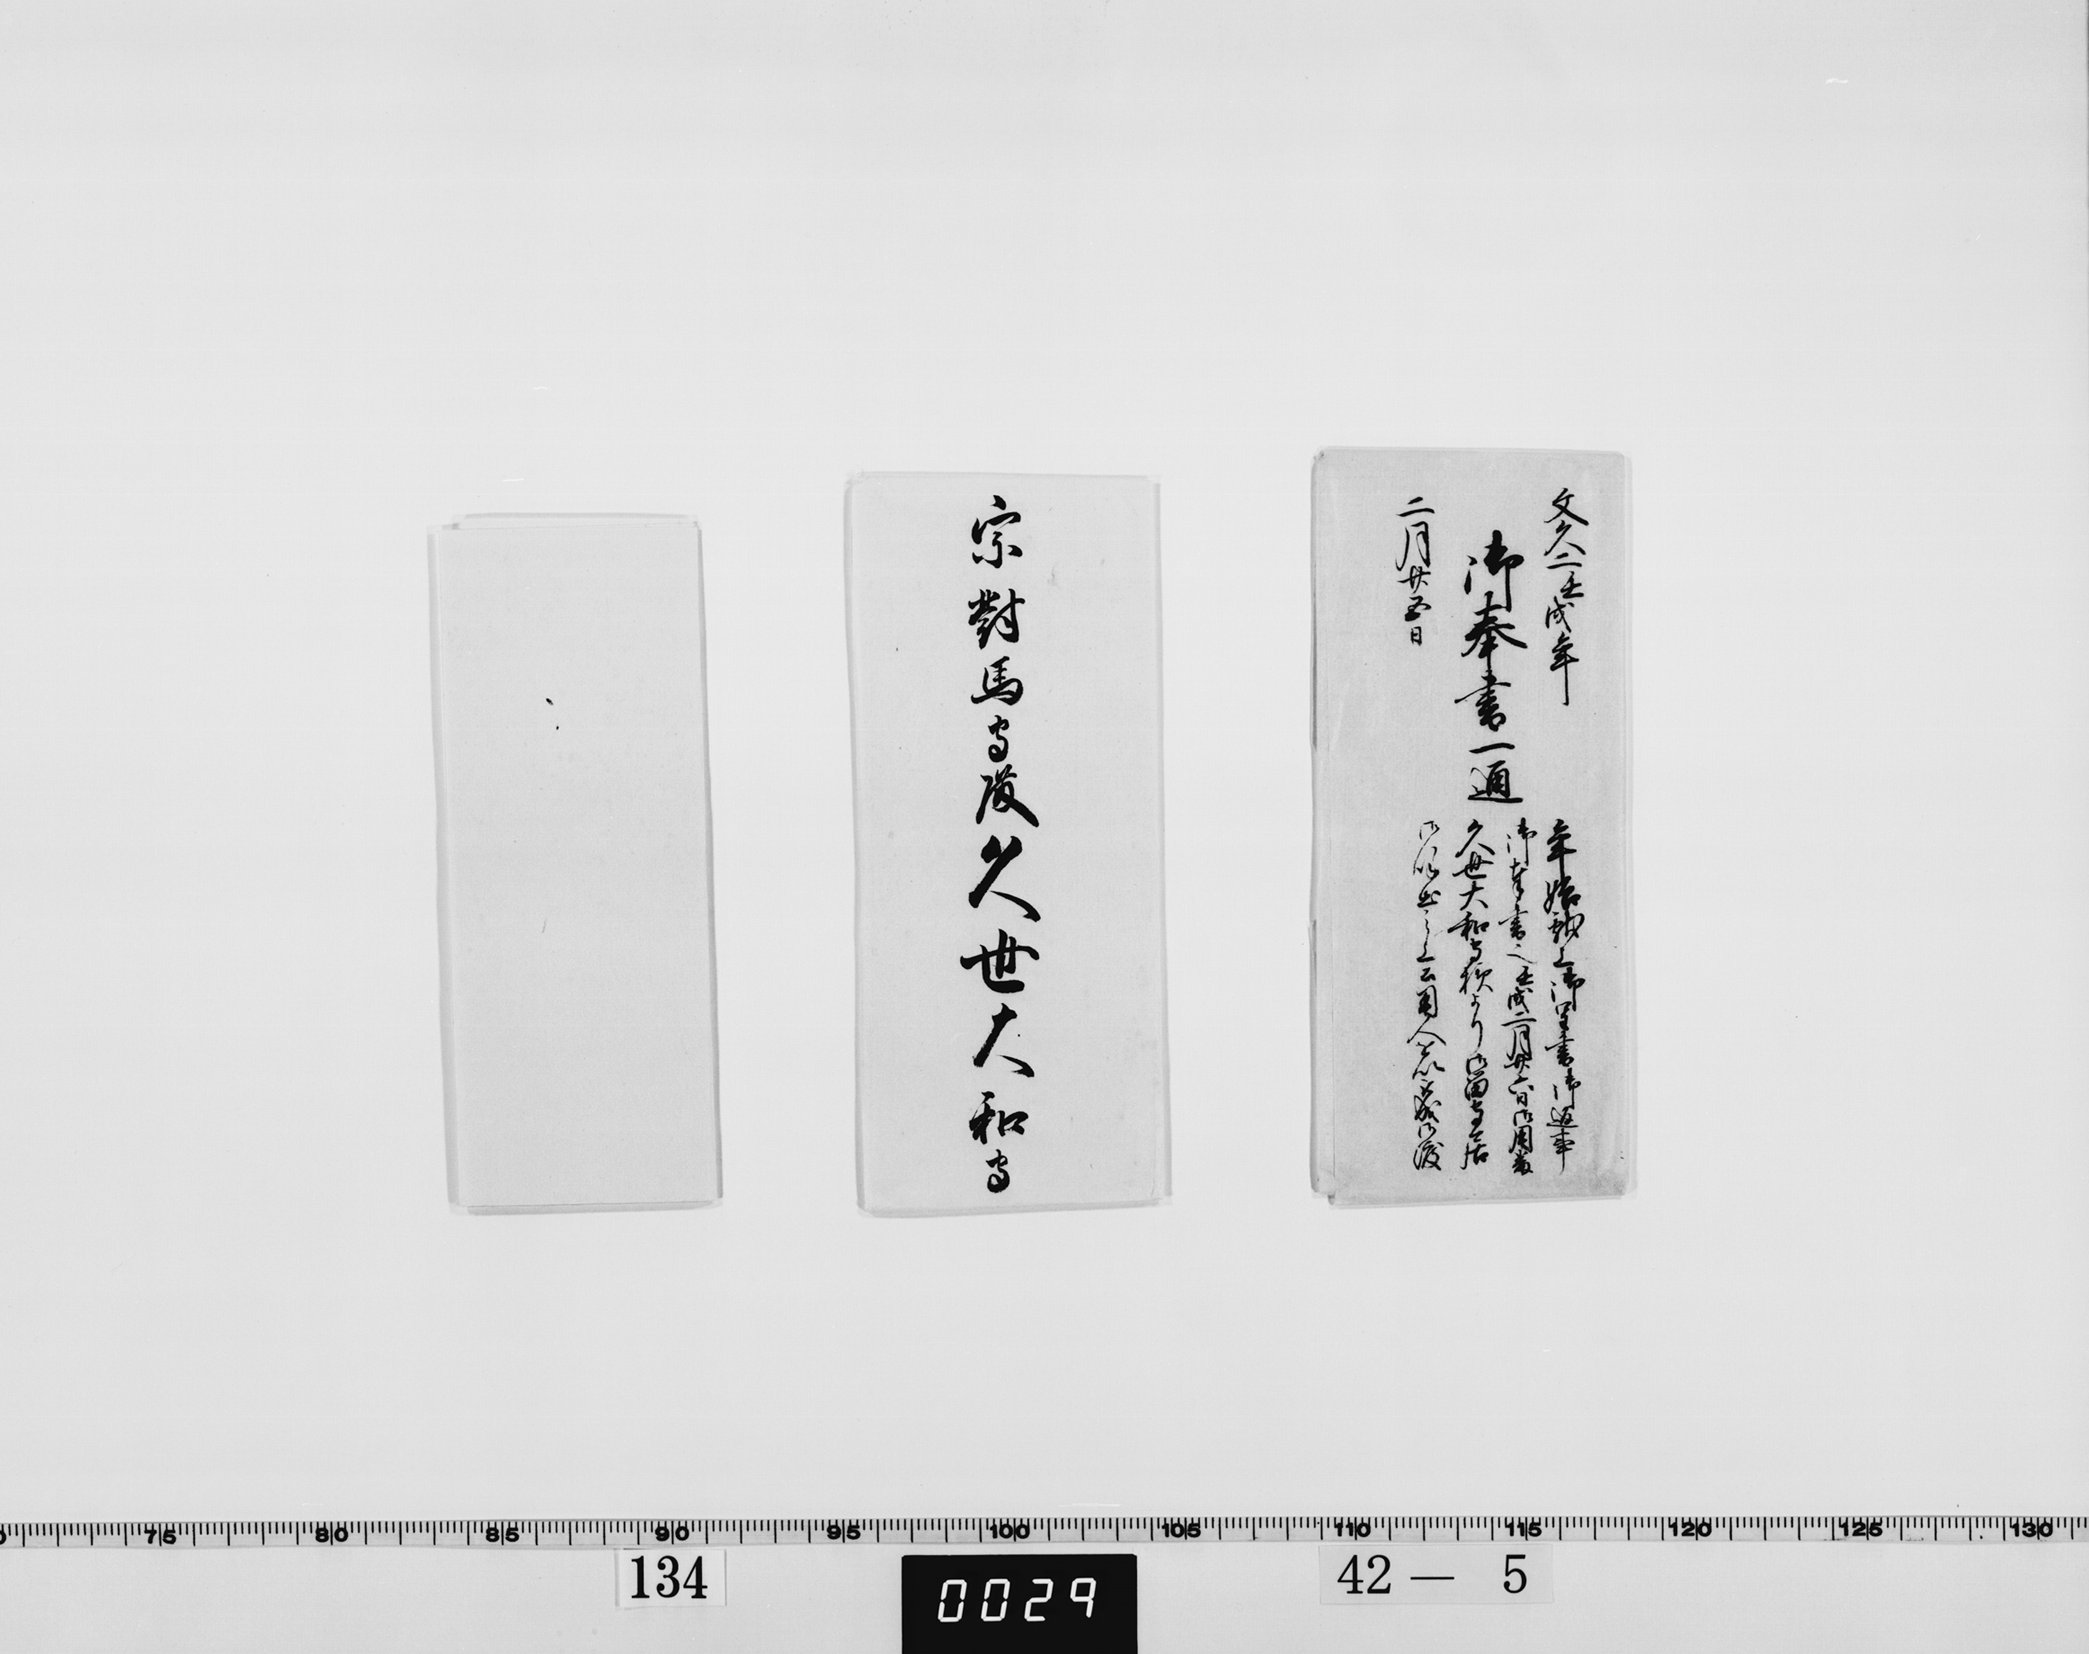 文久二壬戌年
御奉書一通
二月廿五日
年始献上御呈書御返事
御奉書之壬戌二月廿六日御用番
久世大和守様より御留守居
御呼出之上公用人を以御渡
宗對馬守殿 久世大和守
75 80 85 90 95 100 105 110 115 120 125 130
134
0029
42 — 5